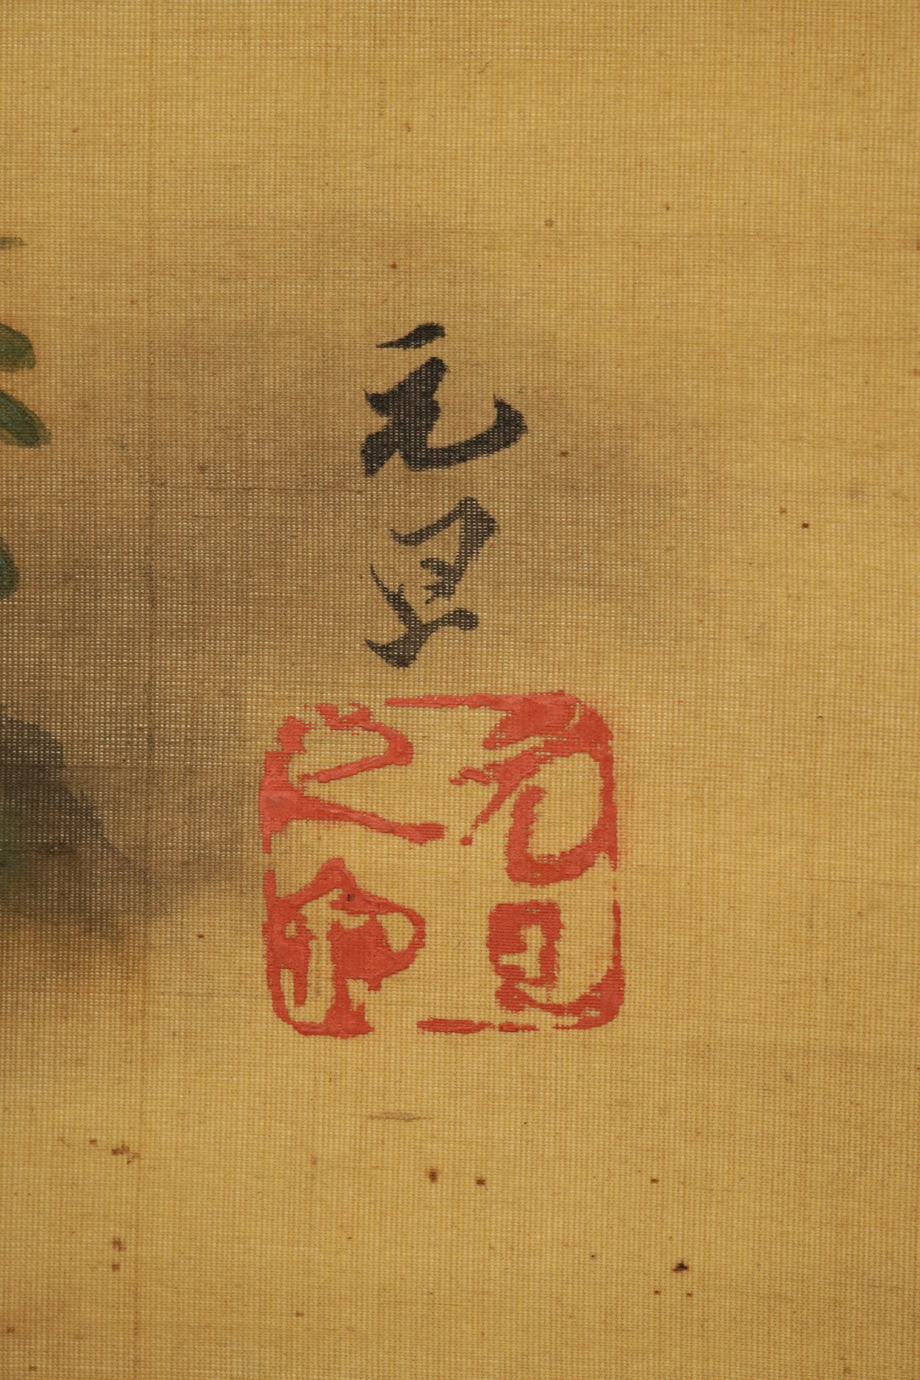 元旦
元旦之印